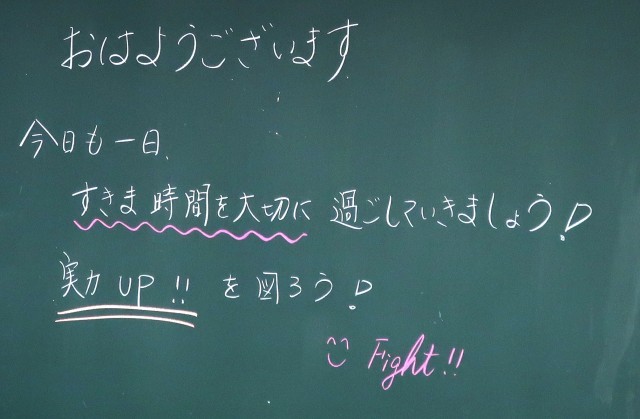 おはようございます
今日も一日、
すきま時間を大切に過ごしていきましょう!
実力UP!!を図ろう!
Fight!!